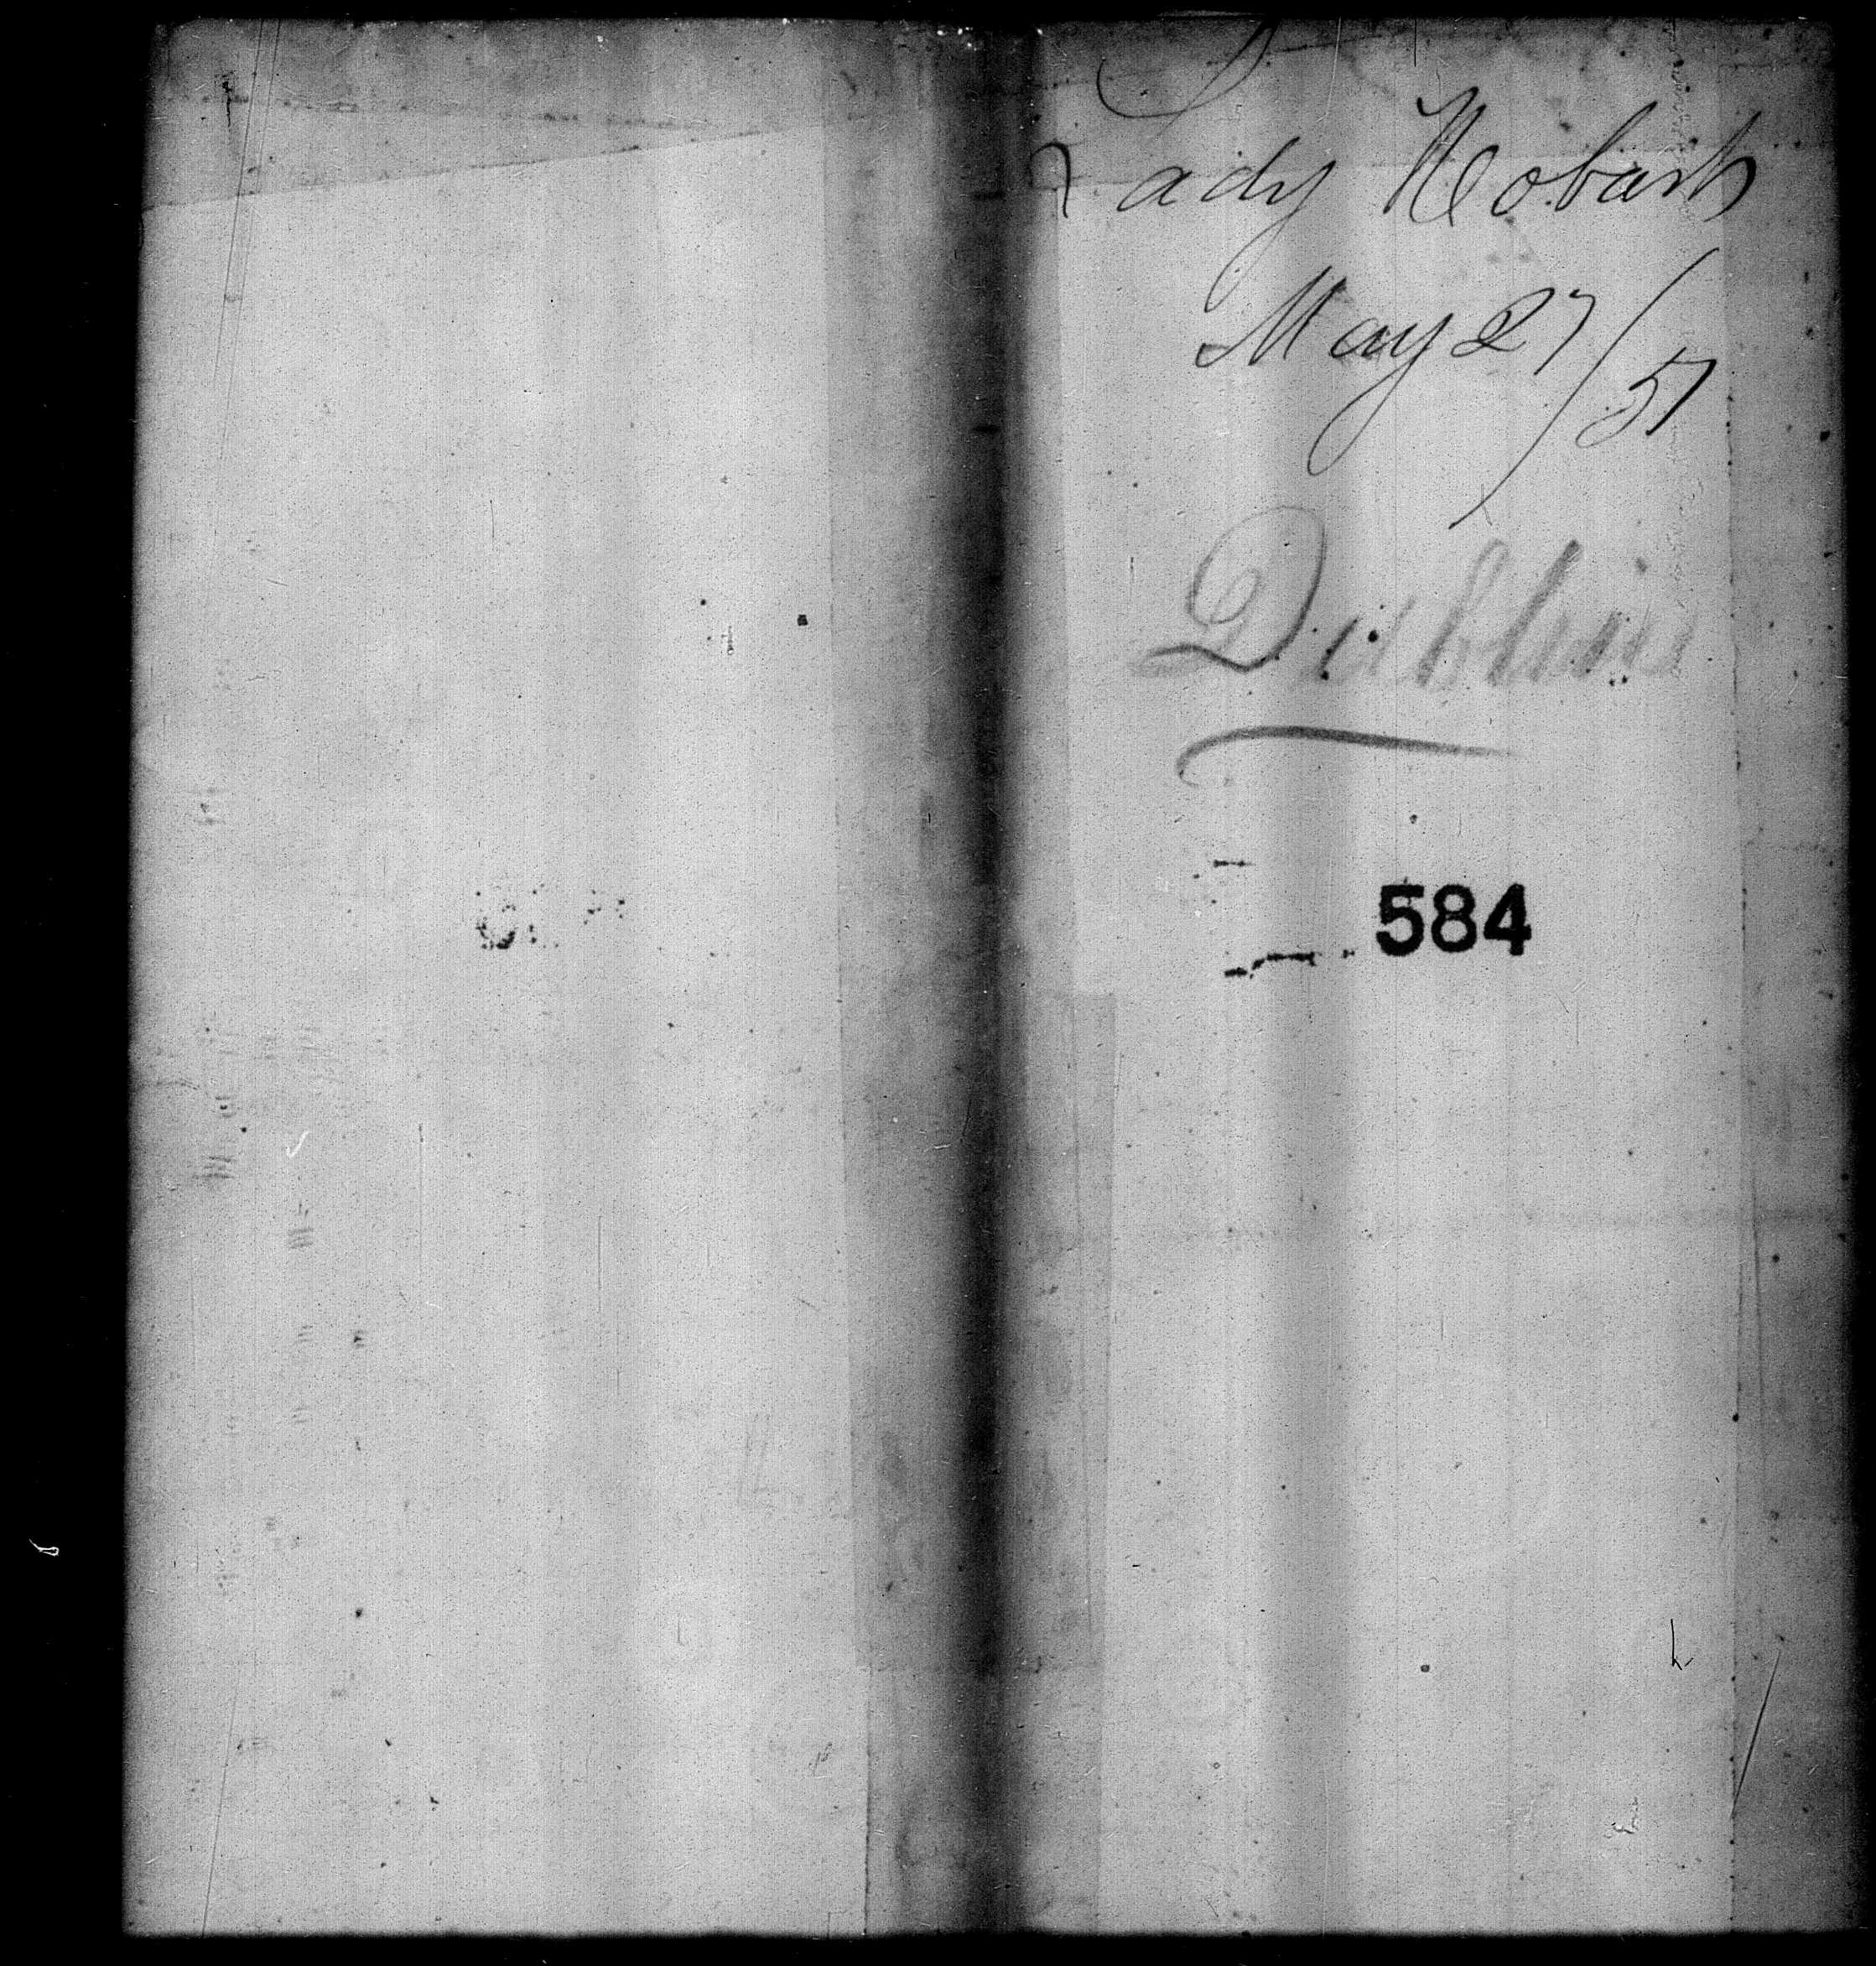 Lady Hobart
May 27/51
Dublin
584